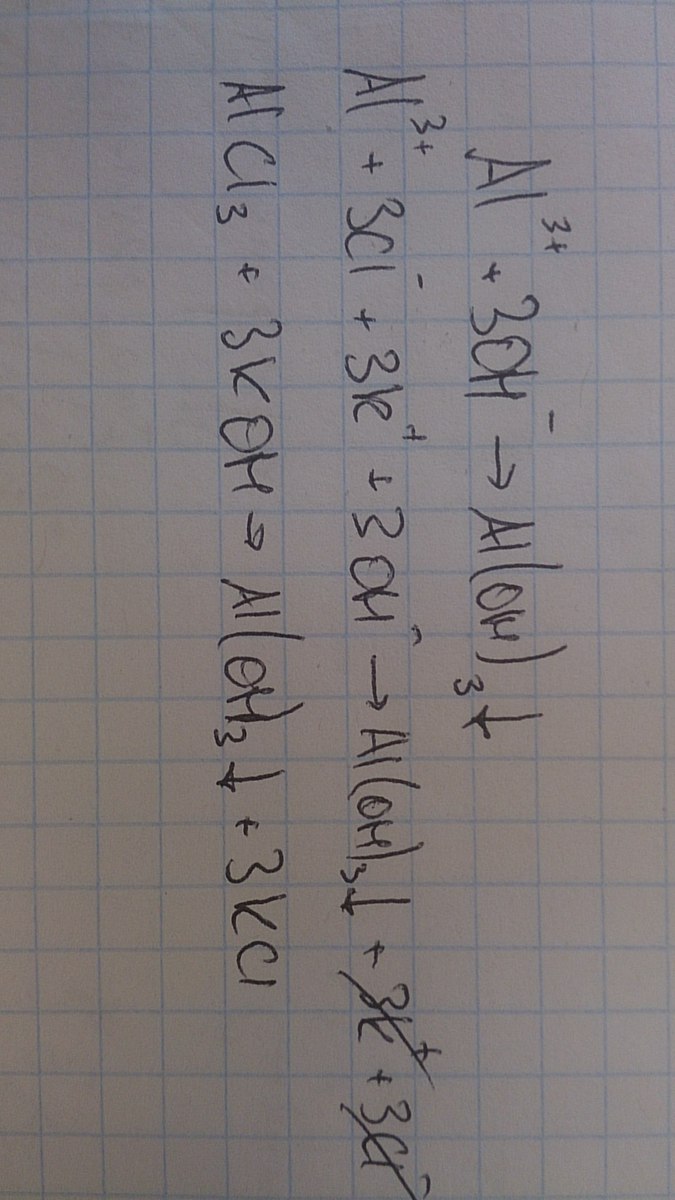 Al³⁺ + 3OH⁻ → Al(OH)₃↓
Al³⁺ + 3Cl⁻ + 3K⁺ + 3OH⁻ → Al(OH)₃↓ + 3K⁺ + 3Cl⁻
AlCl₃ + 3KOH → Al(OH)₃↓ + 3KCl